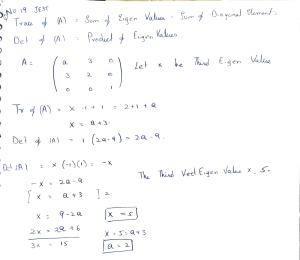 Q No 19 JEST
Trace of (A) = Sum of Eigen Values = Sum of Diagonal Element.
Det of (A) = Product of Eigen Values
A = ( a 3 0 Let x be Third Eigen Value
3 2 0
0 0 1 )
Tr of (A) = x -1 + 1 = 2+1+a
x = a+3.
Det of |A| = 1 (2a-9) = 2a-9.
Det |A| = x (-1)(1) = -x
The Third Eigen Value x = 5.
-x = 2a-9
[ x = a+3 ] 2
x = 9-2a x = 5
2x = 2a+6 x = 5 = a+3
3x = 15 a = 2